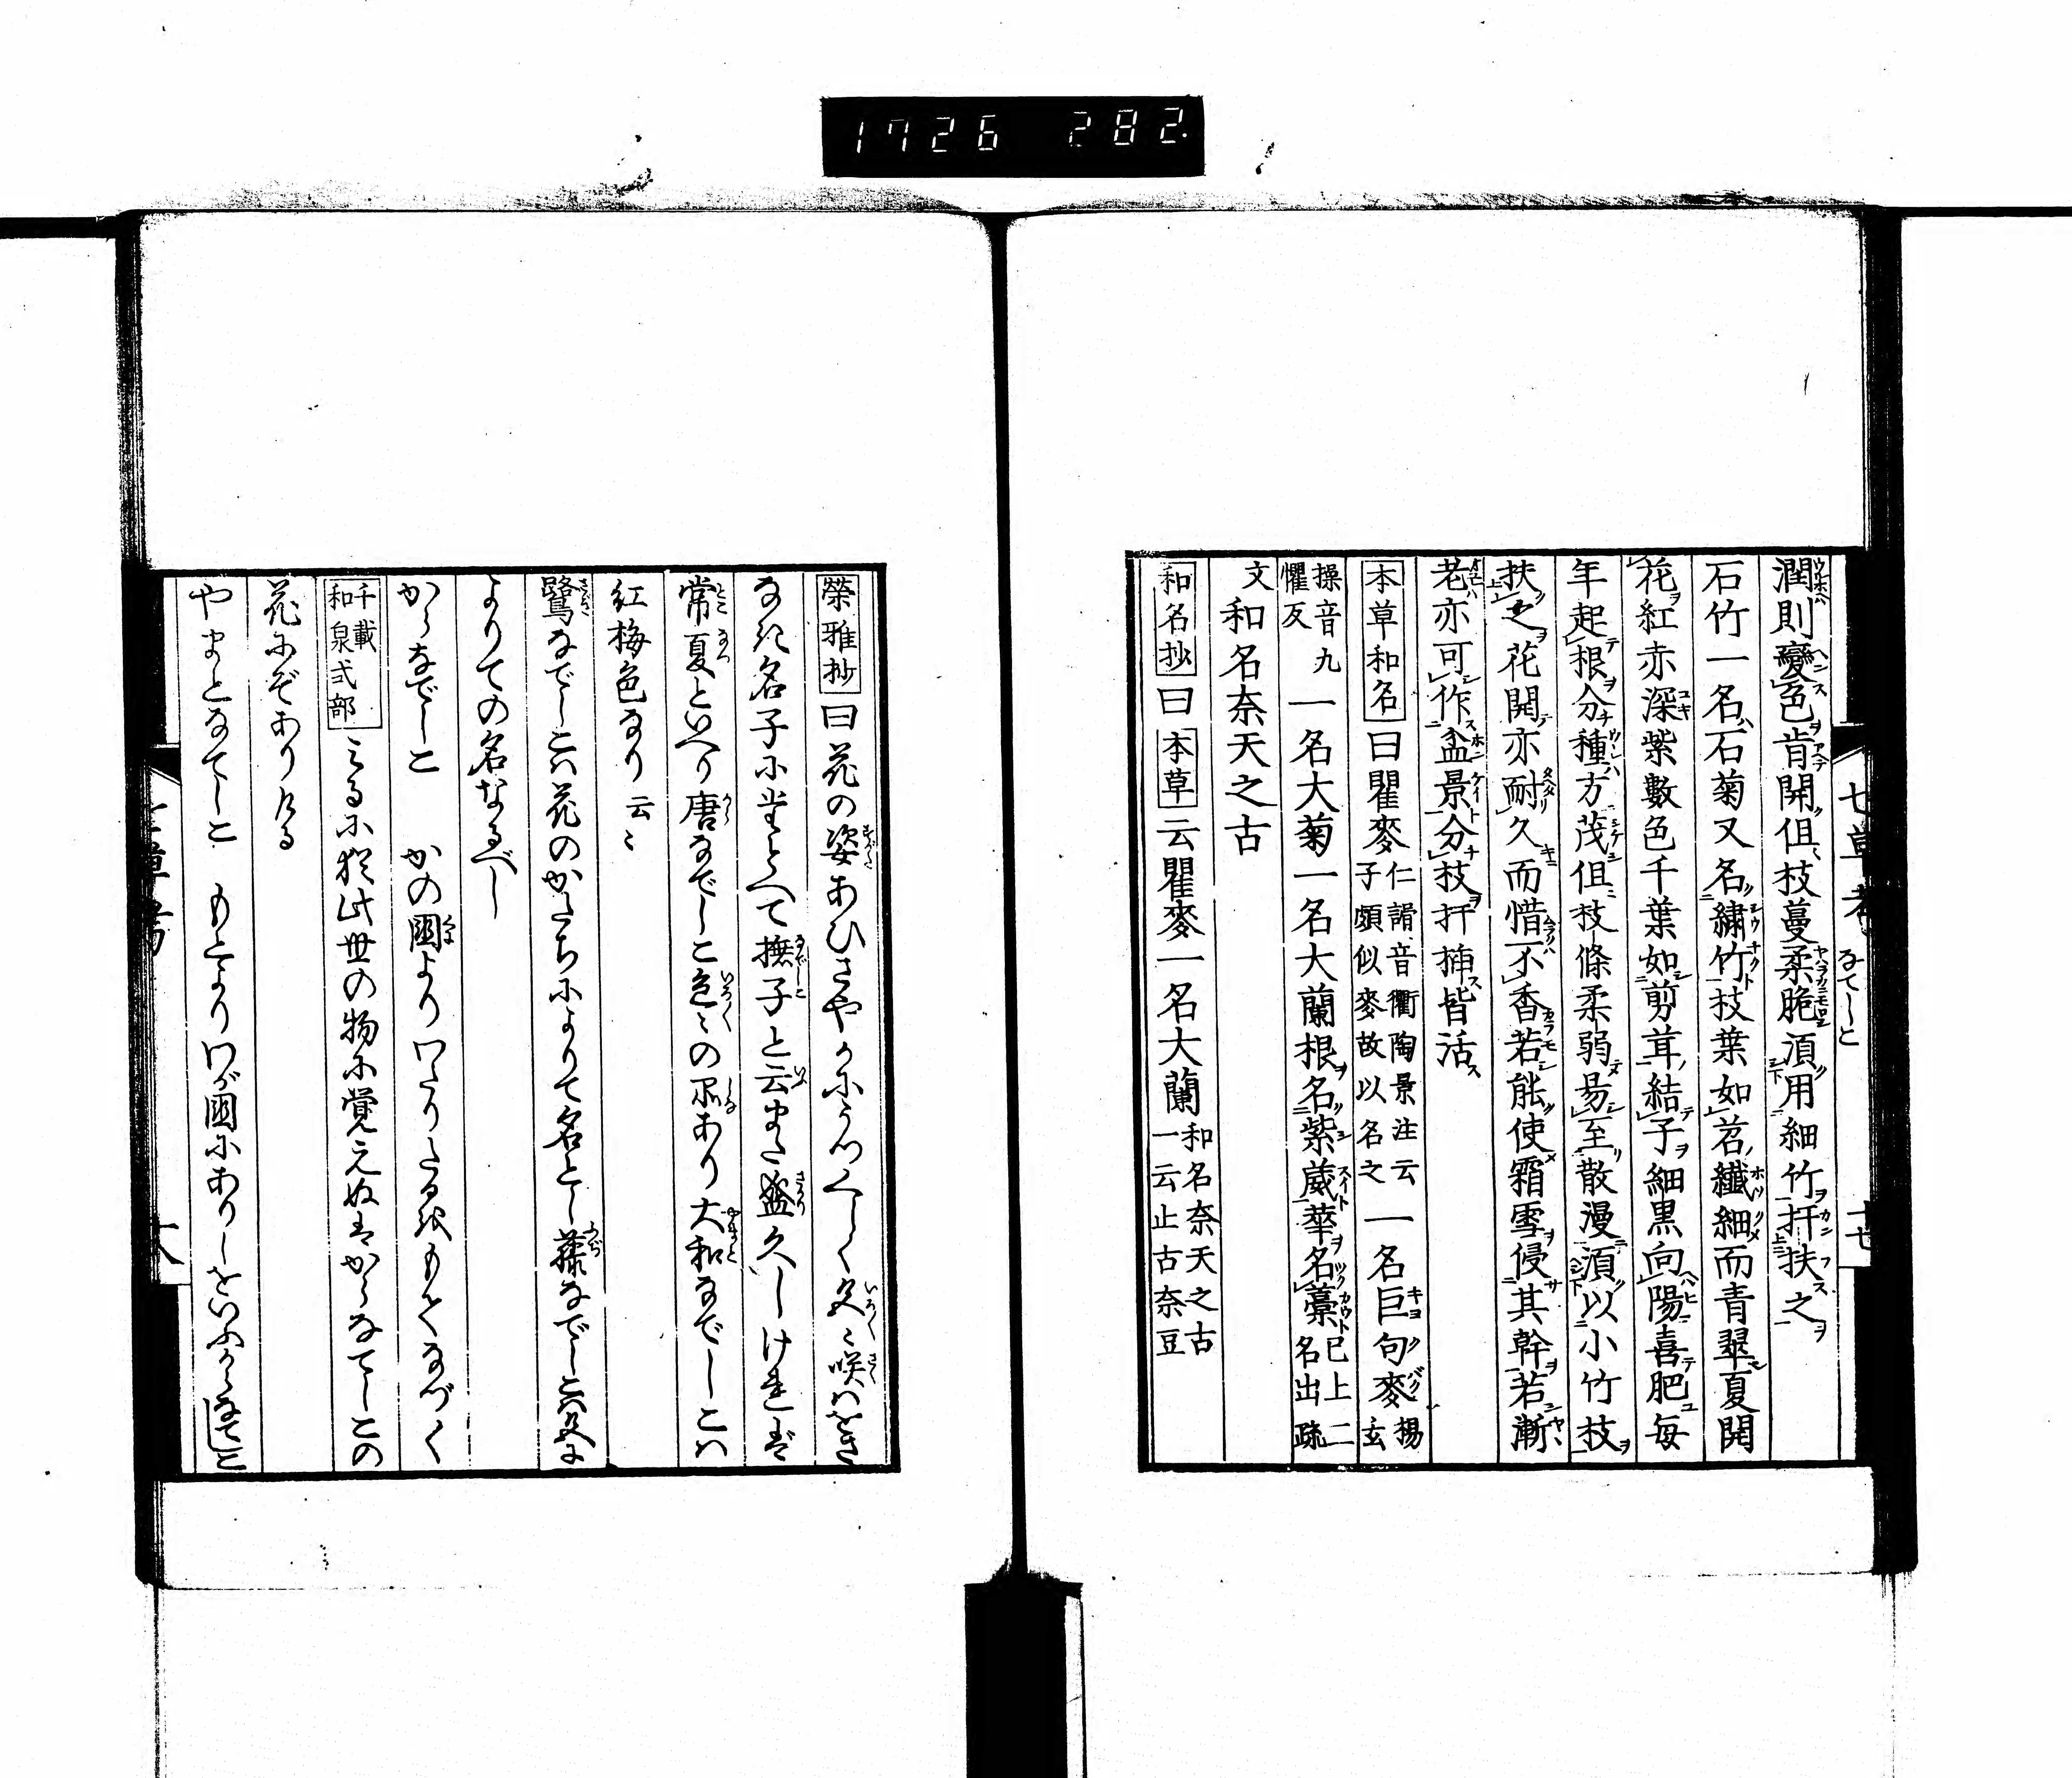 1726 282
七草考 なでしこ 十七
潤則變色肯開但枝蔓柔脆湏用細竹扞扶之
石竹一名石菊又名繡竹枝葉如苕纖細而青翠夏開
花紅赤深紫數色千葉如剪茸結子細黒向陽喜肥毎
年起根分種方茂但枝條柔弱易至散漫湏以小竹枝
扶之花開亦耐久而惜不香若能使霜雪侵其幹若漸
老亦可作盆景分枝扞挿皆活
本草和名曰瞿麥仁諝音衢陶景注云子頗似麥故以名之一名巨句麥楊玄
操音九懼反一名大菊一名大蘭根名紫葳華名藁已上二名出疏
文和名奈天之古
和名抄曰本草云瞿麥一名大蘭和名奈天之古一云止古奈豆
榮雅抄曰花の姿あひさやかにうつくしく
なれ名子にたとへて撫子と云また盛久しければ
常夏といへり唐なでしこ色〻の品あり大和なでしこハ
紅梅色なり云〻
鷺なでしこハ花のかたちによりて名とし藤なでしこハ
よりての名なるべし
からなでしこ かの國よりわたりたる
千載和泉式部 みるに猶此世の物に覚えぬはからなてしこの
花にぞありける
やまとなてしこ もとよりわが國にありしをいふからなてしこ